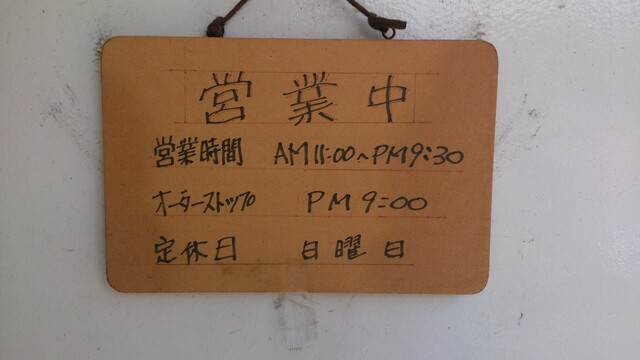 営業中
営業時間 AM11:00~PM9:30
オーダーストップ PM9:00
定休日 日曜日